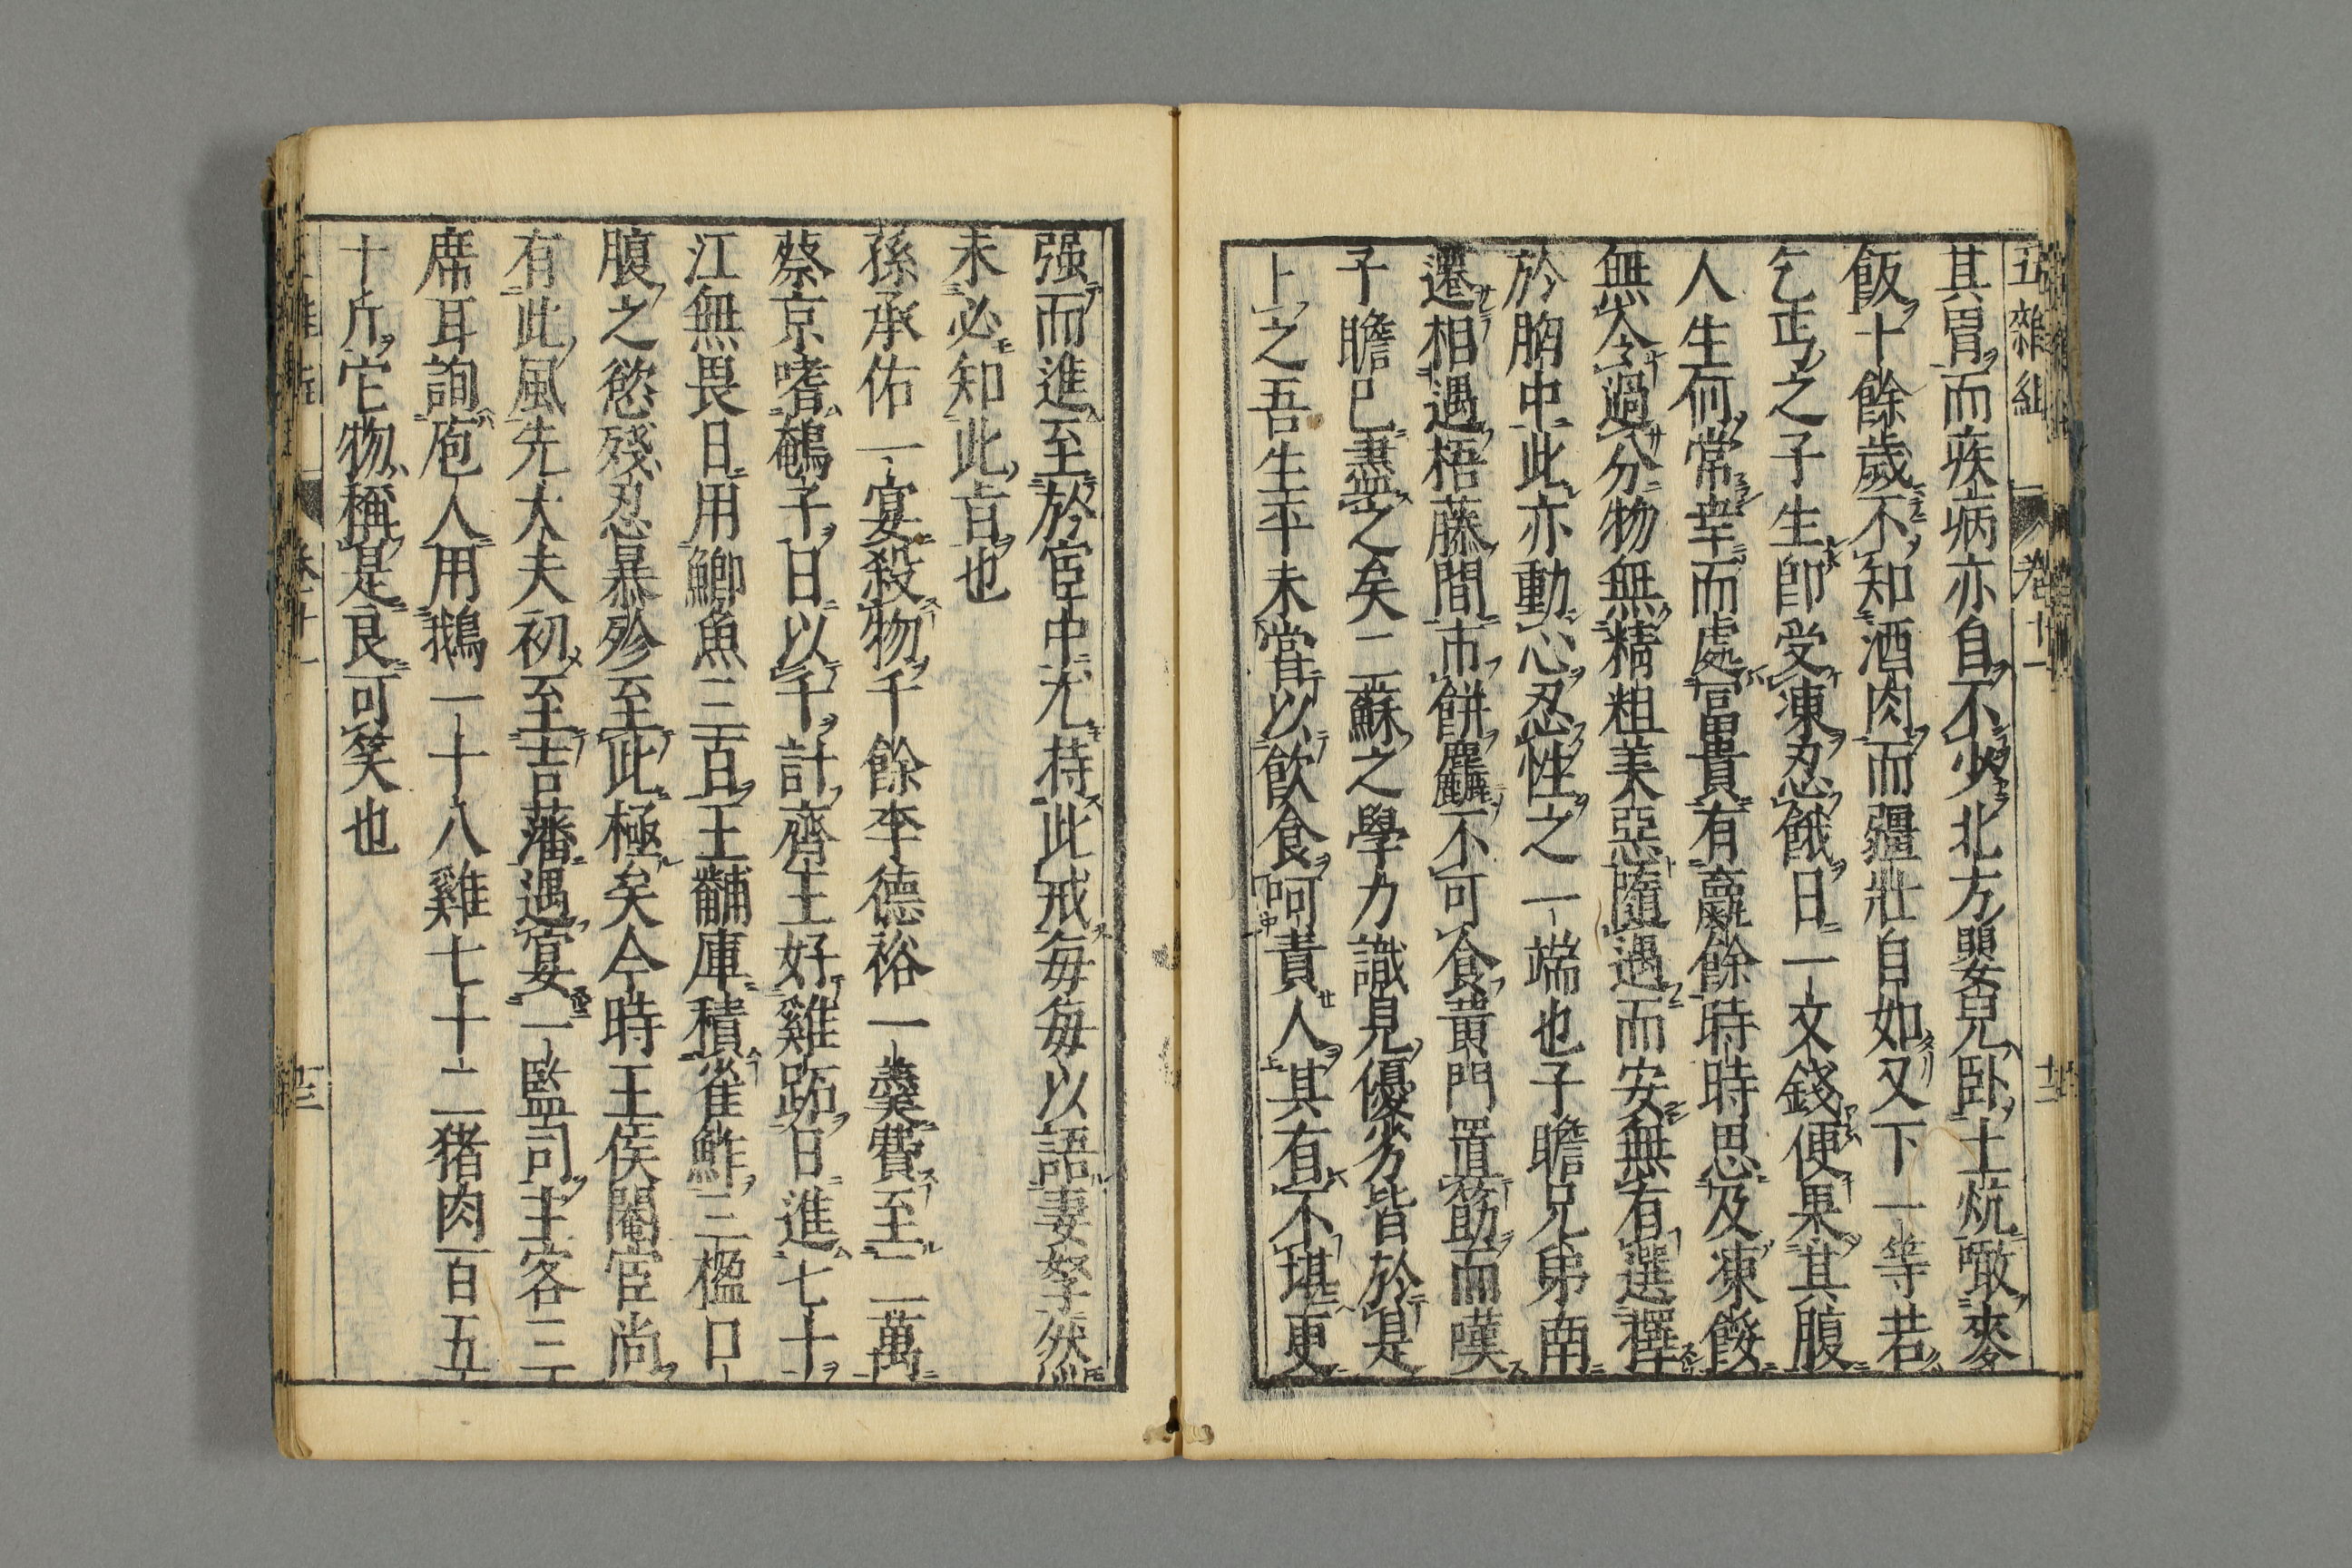 五雜組 卷十一 十三
其胃而疾病亦自不少北方嬰兒卧土炕噉麥
飯十餘歲不知酒肉而疆壯自如又下一等若
乞丐之子生卽受凍忍餓日一文錢便果其腹
人生何常幸而處富貴有贏餘時時思及凍餒
無令過分物無精粗美惡隨遇而安無有選擇
於胷中此亦動心忍性之一端也子瞻兄弟南
遷相遇梧藤間市餅麤不可食黃門置筯而嘆
子瞻已盡之矣二蘇之學力識見優劣皆於是
卜之吾生平未嘗以飲食呵責人其有不堪更
强而進至於宦中尤持此戒每每以語妻孥然
未必知此言也
孫承佑一宴殺物千餘李德裕一羹費至二萬
蔡京嗜鵪子日以千計齊王好雞跖日進七十
江無畏日用鯽魚三百王黼庫積雀鮓三楹口
腹之慾殘忍暴殄至此極矣今時王侯閹宦尚
有此風先大夫初至吉藩遇宴一監司主客三
席耳詢庖人用鵝一十八雞七十二猪肉百五
十斤它物稱是良可笑也